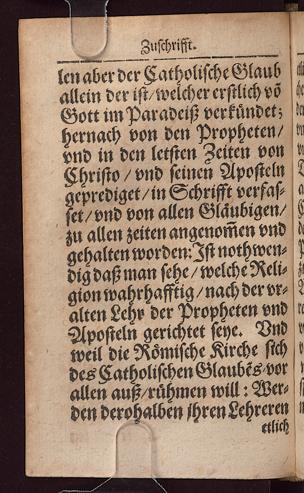 Zuschrifft.
len aber der Catholische Glaub
allein der ist/welcher erstlich võ
Gott im Paradeiß verkündet;
hernach von den Propheten/
vnd in den letsten Zeiten von
Christo/vnd seinen Aposteln
geprediget/in Schrifft verfas-
set/vnd von allen Gläubigen/
zu allen zeiten angenom̃en vnd
gehalten worden: Ist nothwen-
dig daß man sehe/welche Reli-
gion wahrhafftig/nach der vr-
alten Lehr der Propheten vnd
Aposteln gerichtet seye. Vnd
weil die Römische Kirche sich
des Catholischen Glaubẽs/vor
allen auß/rühmen will: Wer-
den derohalben ihren Lehreren
etlich